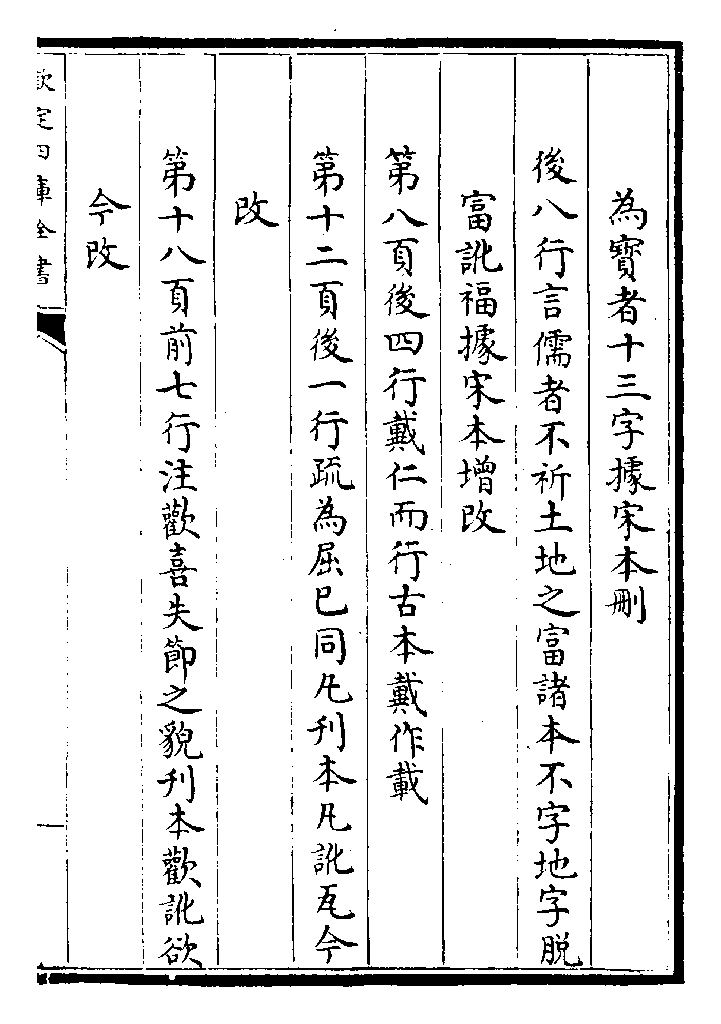 為寳者十三字據宋本刪
後八行言儒者不祈土地之富諸本不字地字脱
富訛福據宋本增改
第八頁後四行戴仁而行古本戴作載
第十二頁後一行疏為屈已同凡刋本凡訛瓦今
改
第十八頁前七行注歡喜失節之貌刋本歡訛欲
今改
欽定四庫全書